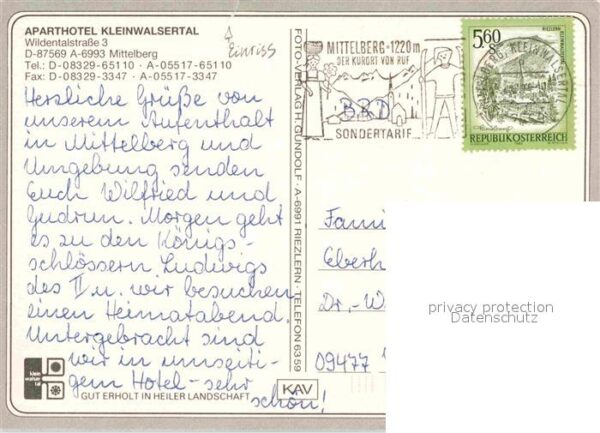 APARTHOTEL KLEINWALSERTAL
Wildentalstraße 3
D-87569 A-6993 Mittelberg
Tel.: D-08329-65110 A-05517-65110
Fax: D-08329-3347 A-05517-3347
Einriss
Herzliche Grüße von
unserem Aufenthalt
in Mittelberg und
Umgebung senden
Euch Wilfried und
Gudrun. Morgen geht
es zu den Königs-
schlössern Ludwigs
des II u. wir besuchen
einen Heimatabend.
Untergebracht sind
wir in umseiti-
gem Hotel - sehr
schön!
klein
walser
tal
GUT ERHOLT IN HEILER LANDSCHAFT
KAV
FOTO-VERLAG H. GUNDOLF · A-6991 RIEZLERN · TELEFON 6359
MITTELBERG · 1220 m
DER KURORT VON RUF
BRD
SONDERTARIF
5.60
S
RIEZLERN
KLEINWALSERTAL
REPUBLIK ÖSTERREICH
Fami
Eberh
Dr.-W
09477
privacy protection
Datenschutz